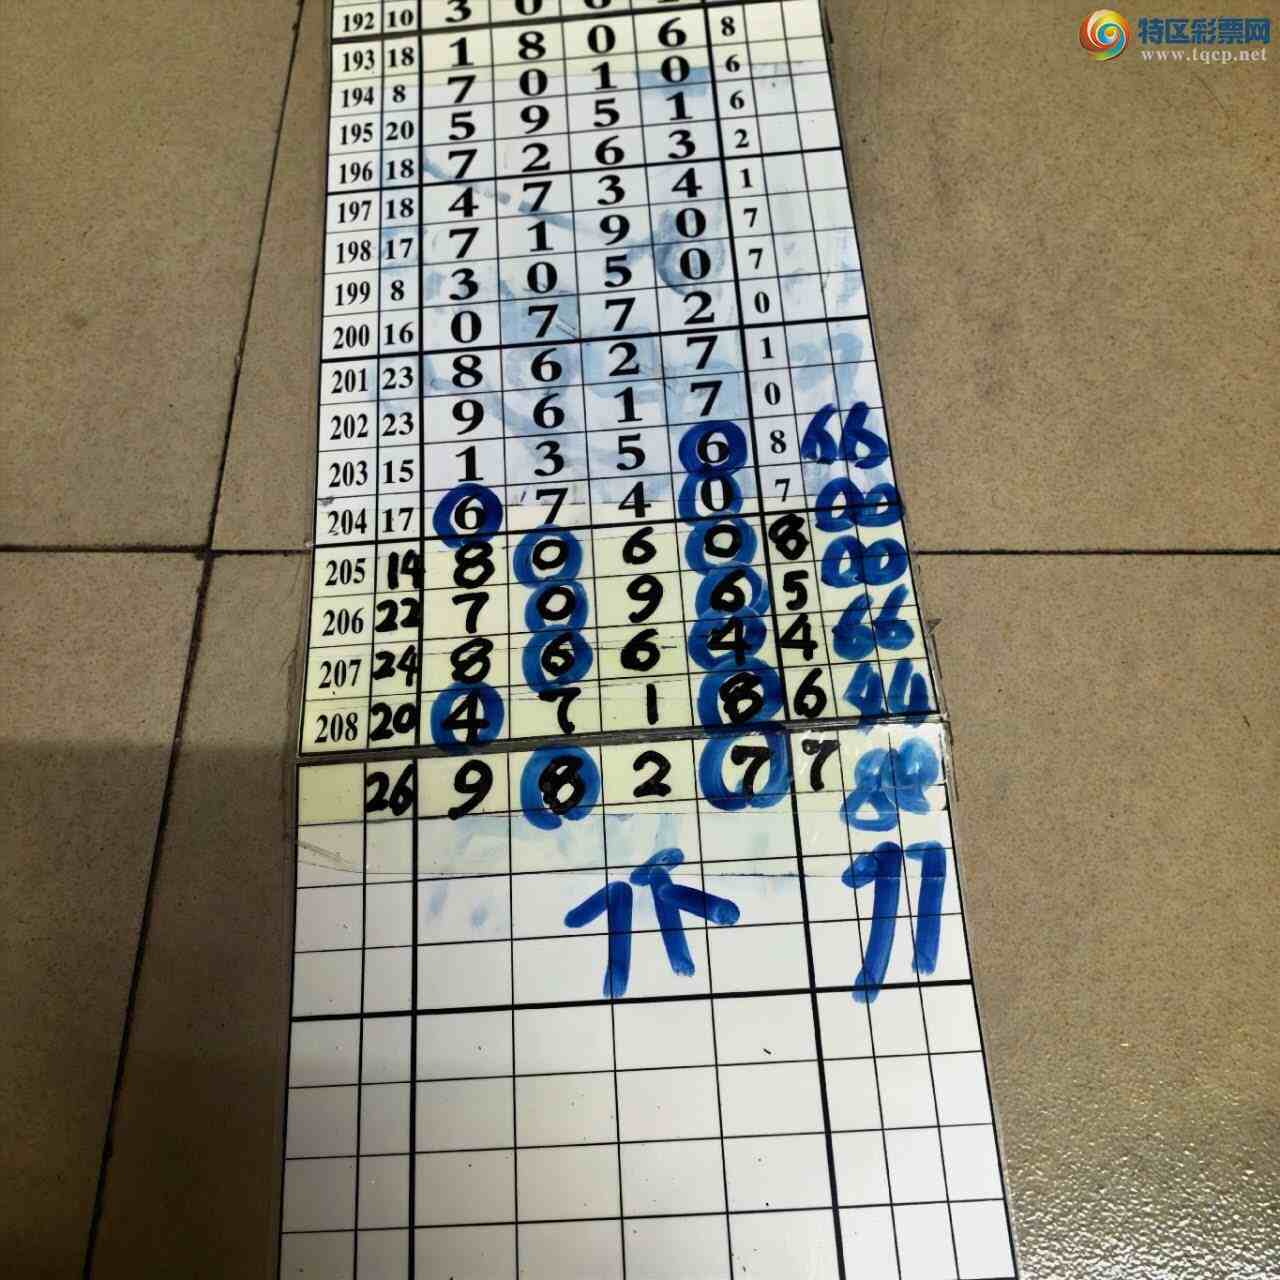 特区彩票网
www.tqcp.net
192 10 3 0
193 18 1 8 0 6 8
194 8 7 0 1 0 6
195 20 5 9 5 1 6
196 18 7 2 6 3 2
197 18 4 7 3 4 1
198 17 7 1 9 0 7
199 8 3 0 5 0 7
200 16 0 7 7 2 0
201 23 8 6 2 7 1
202 23 9 6 1 7 0
203 15 1 3 5 6 8 66
204 17 6 7 4 0 7 00
205 14 8 0 6 0 8 00
206 22 7 0 9 6 5 66
207 24 8 6 6 4 4 44
208 20 4 7 1 8 6 88
26 9 8 2 7 7
77